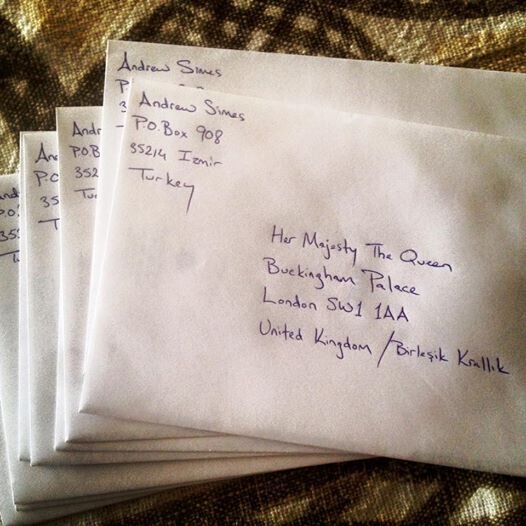 Andrew Simes
P.O. Box 908
35214 Izmir
Turkey
Her Majesty The Queen
Buckingham Palace
London SW1 1AA
United Kingdom / Birleşik Krallık
Andrew Simes
P
3
Andr
P.O.B
352
Tu
An
P.O
35
T